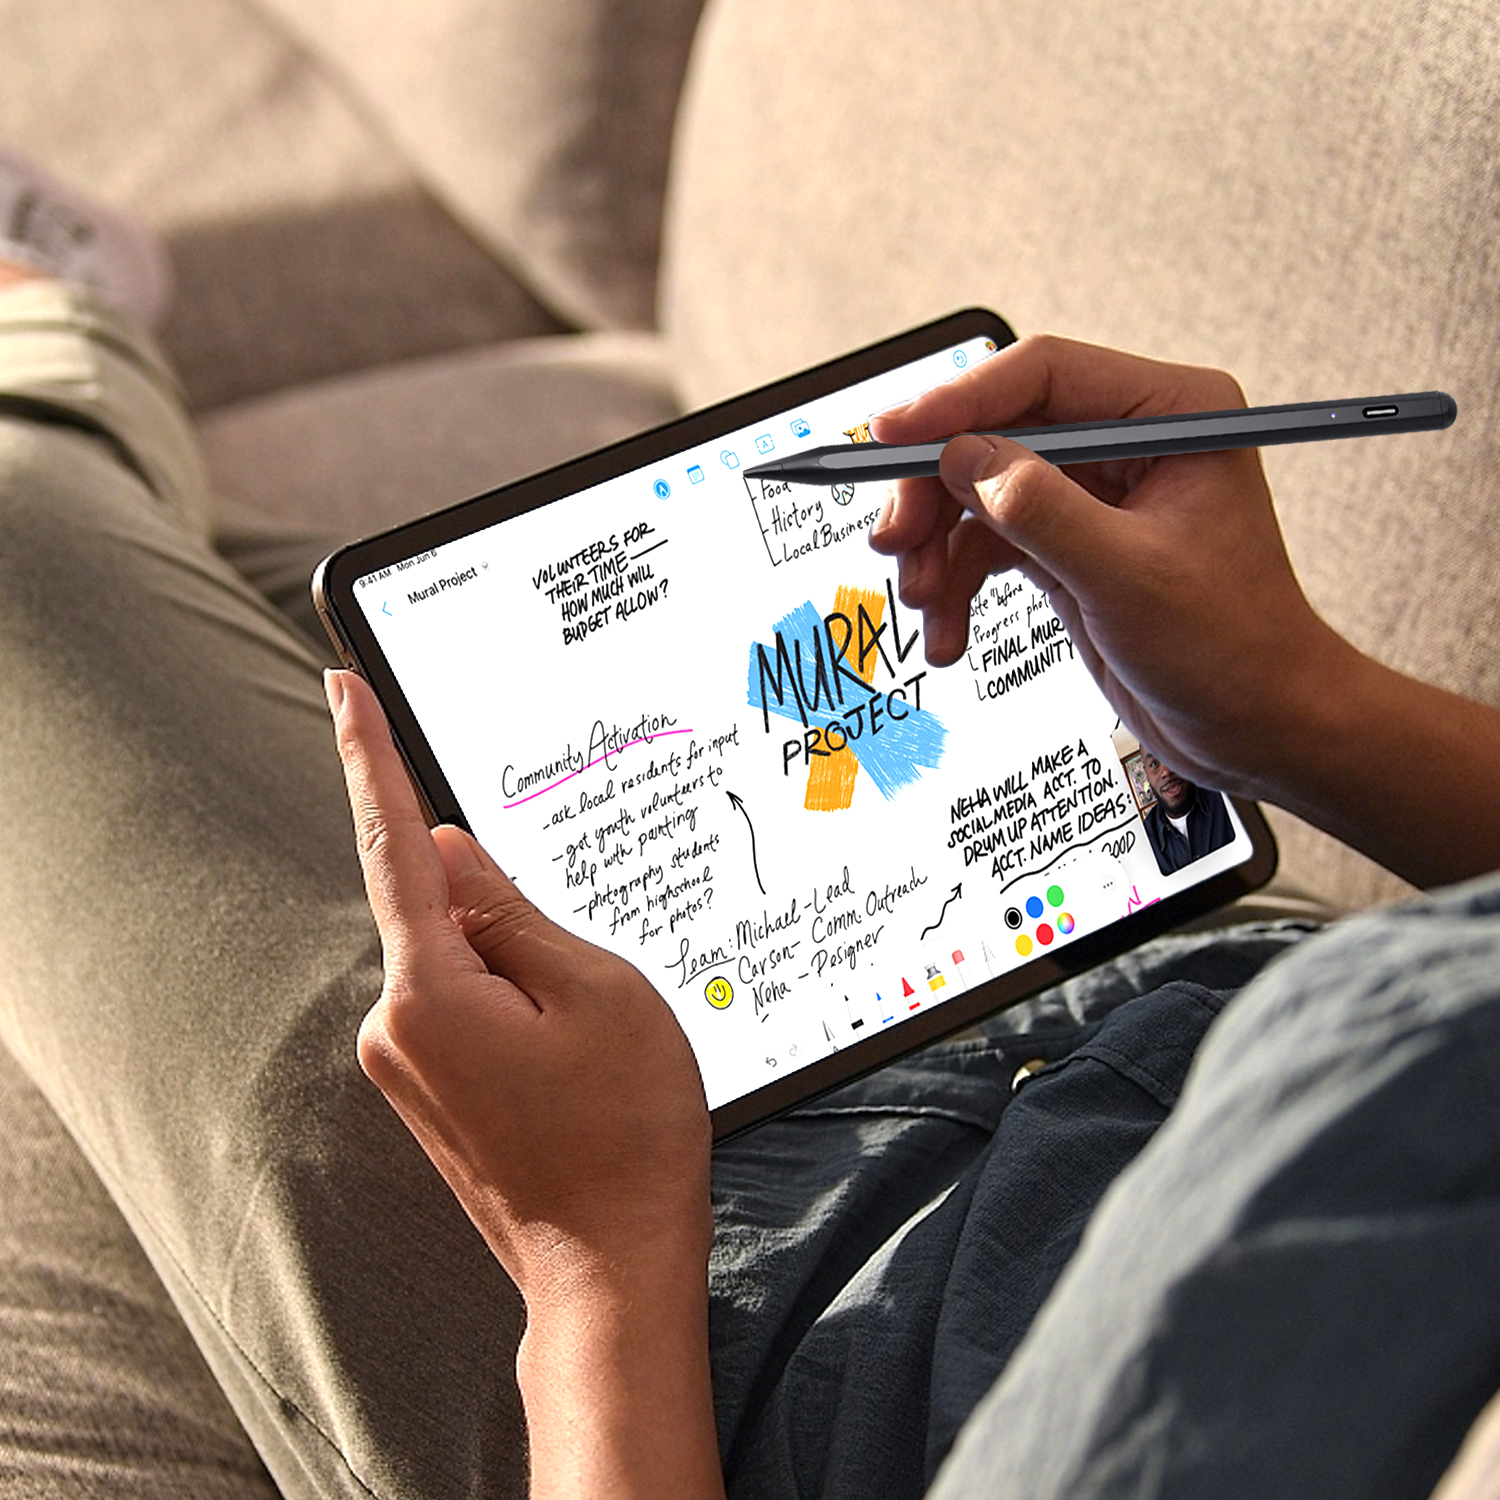 9:41 AM Mon Jun 6
Mural Project
VOLUNTEERS FOR
THEIR TIME
HOW MUCH WILL
BUDGET ALLOW?
- Food
- History
Local Business
site "before
Progress
FINAL
COMMUNITY
MURAL
PROJECT
Community Activation
- ask local residents for input
- get youth volunteers to
help with painting
- photography students
from highschool
for photos?
Team: Michael - Lead
Carson - Comm. Outreach
Neha - Designer
NEHA WILL MAKE A
SOCIAL MEDIA ACCT. TO
DRUM UP ATTENTION.
ACCT. NAME IDEAS: